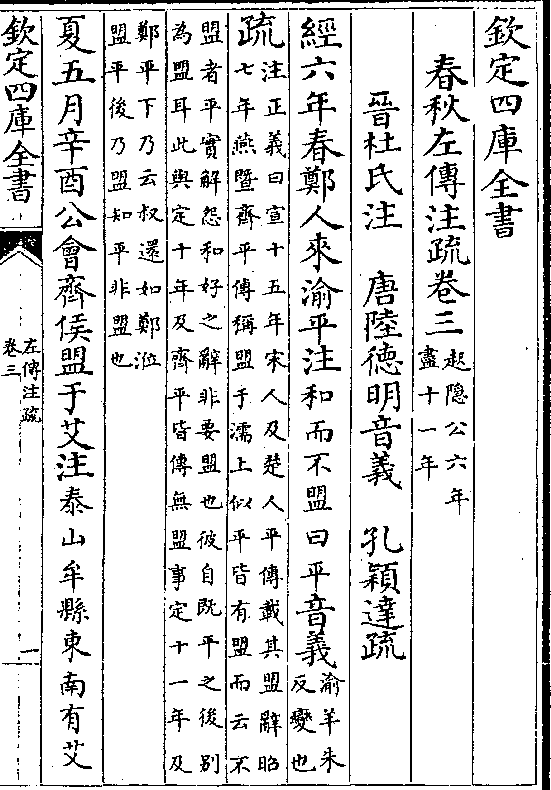 欽定四庫全書
春秋左傳注疏卷三
起隱公六年
盡十一年
晉杜氏注 唐陸德明音義 孔穎達疏
經六年春鄭人來渝平注和而不盟曰平音義
渝羊朱
反變也
疏
注正義曰宣十五年宋人及楚人平傳載其盟辭昭
七年燕暨齊平傳稱盟于濡上似平皆有盟而云不
盟者平實解怨和好之辭非要盟也彼自既平之後別
為盟耳此與定十年及齊平皆傳無盟事定十一年及
鄭平下乃云叔還如鄭涖
盟平後乃盟知平非盟也
夏五月辛酉公會齊侯盟于艾注泰山牟縣東南有艾
欽定四庫全書
左傳注疏
卷三
一